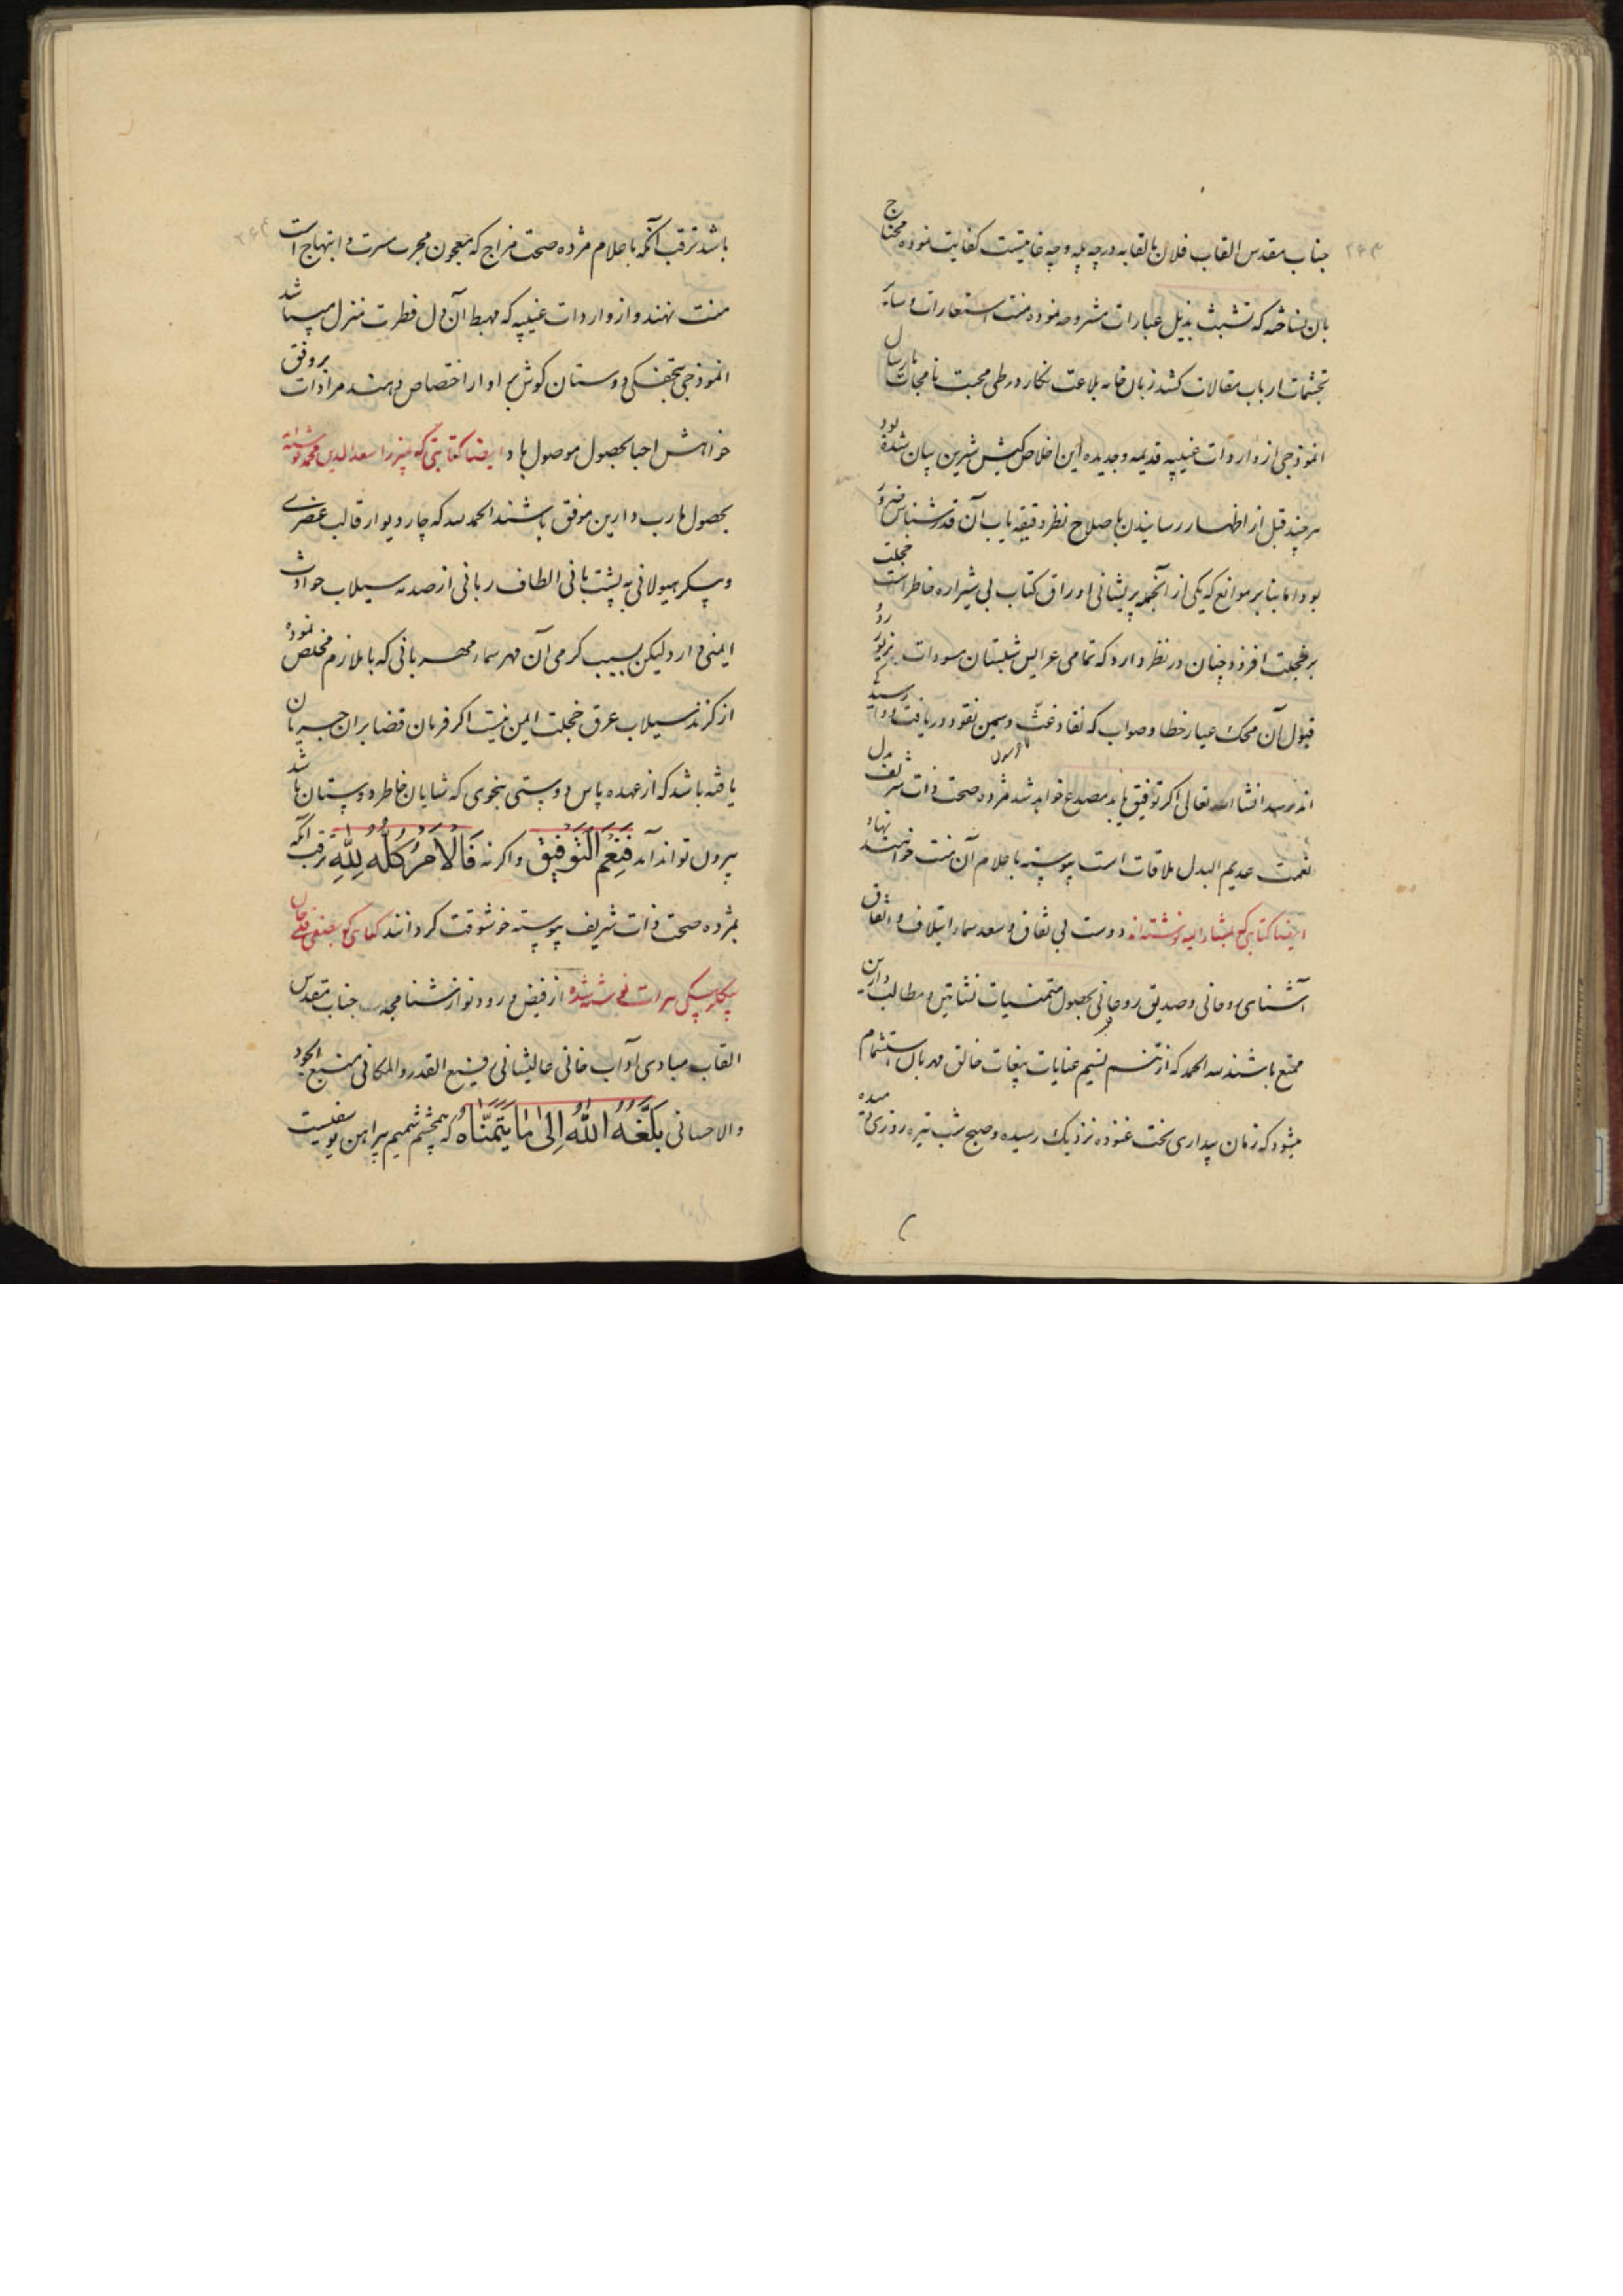 جناب مقدس القاب فلان بالقابه درچه پله و چه خاصیتست کفایت نموده محتاج
بان نساخته که تشبث بذیل عبارات مشروحه نموده منت استعارات و سایه
تجشمات ارباب مقالات کشد زبان خامه بلاغت نکار در طی محبت نامجات بارسال
انموذجی از واردات غیبیه قدیمه و جدیده این اخلاص کیش شیرین بیان شده بود
هر چند قبل از اظهار رسانیدن باصلاح نظر دقیقه یاب آن قدرشناس ضرور
بود اما بنا بر موانع که یکی از آنجمله پریشانی اوراق کتاب بی شیرازه خاطر است خجلت
بر خجلت افزود چنان در نظر دارد که تمامی عرایس شبستان مسودات بزیور
قبول آن محک عیار خطا و صواب که نقاد غث و سمین نقود دریافت
اند رسد انشاء الله تعالی اکر توفیق یابد مصدع خواهد شد مژده صحت ذات شریف
نعمت عدیم البدل ملاقات است پیوسته باعلام آن منت خواهند نهاد
ایضا کتابی که بمشارالیه نوشته اند دوست بی نفاق و سعد سماء ایتلاف و اتفاق
آشنای روحانی و صدیق روحانی بحصول متمنیات نشاتین و مطالب دارین
ممتع باشند لله الحمد که از تنسم نسیم عنایات بیغایات خالق مهربان استشمام
میشود که زمان بیداری بخت غنوده نزدیک رسیده و صبح شب تیره روزی
باشد ترقب آنکه باعلام مژده صحت مزاج که معجون مجرب مسرت و ابتهاج است
منت نهند و از واردات غیبیه که مهبط آن دل فطرت منزل میباشد
انموذجی بتحفکی دوستان کوش بر آواز اختصاص دهند مرادات بر وفق
خواهش احبا بحصول موصول باد ایضا کتابتی که میرزا سعدالدین محمد نوشته
بحصول مارب دارین موفق باشند الحمد لله که چار دیوار قالب عنصری
و پیکر هیولانی به پشتبانی الطاف ربانی از صدمه سیلاب حوادث
ایمنی دارد لیکن بسبب کرمی آن مهر سماء مهربانی که با ملازم مخلص نموده
از کزند سیلاب عرق خجلت ایمن نیست اکر فرمان قضا بران جریان
یافته باشد که از عهده پاس دوستی بنحوی که شایان خاطر دوستان باشد
بیرون تواند آمد فَنِعْمَ التَّوْفِیق و اکر نه فَالاَمْرُ کُلُّهُ لِلّٰهِ ترقب آنکه
بمژده صحت ذات شریف پیوسته خوشوقت کردانند کتابی که بصفی قلی خان
بیکلربیکی هرات نوشته شده از فیض ورود نوازشنامجه جناب مقدس
القاب مبادی آداب خانی عالیشانی رفیع القدر و المکانی منبع الجود
والاحسانی بَلَّغَهُ اللّٰهُ اِلیٰ مَا یَتَمَنَّاهُ که همچشم شمیم پیراهن یوسفیست